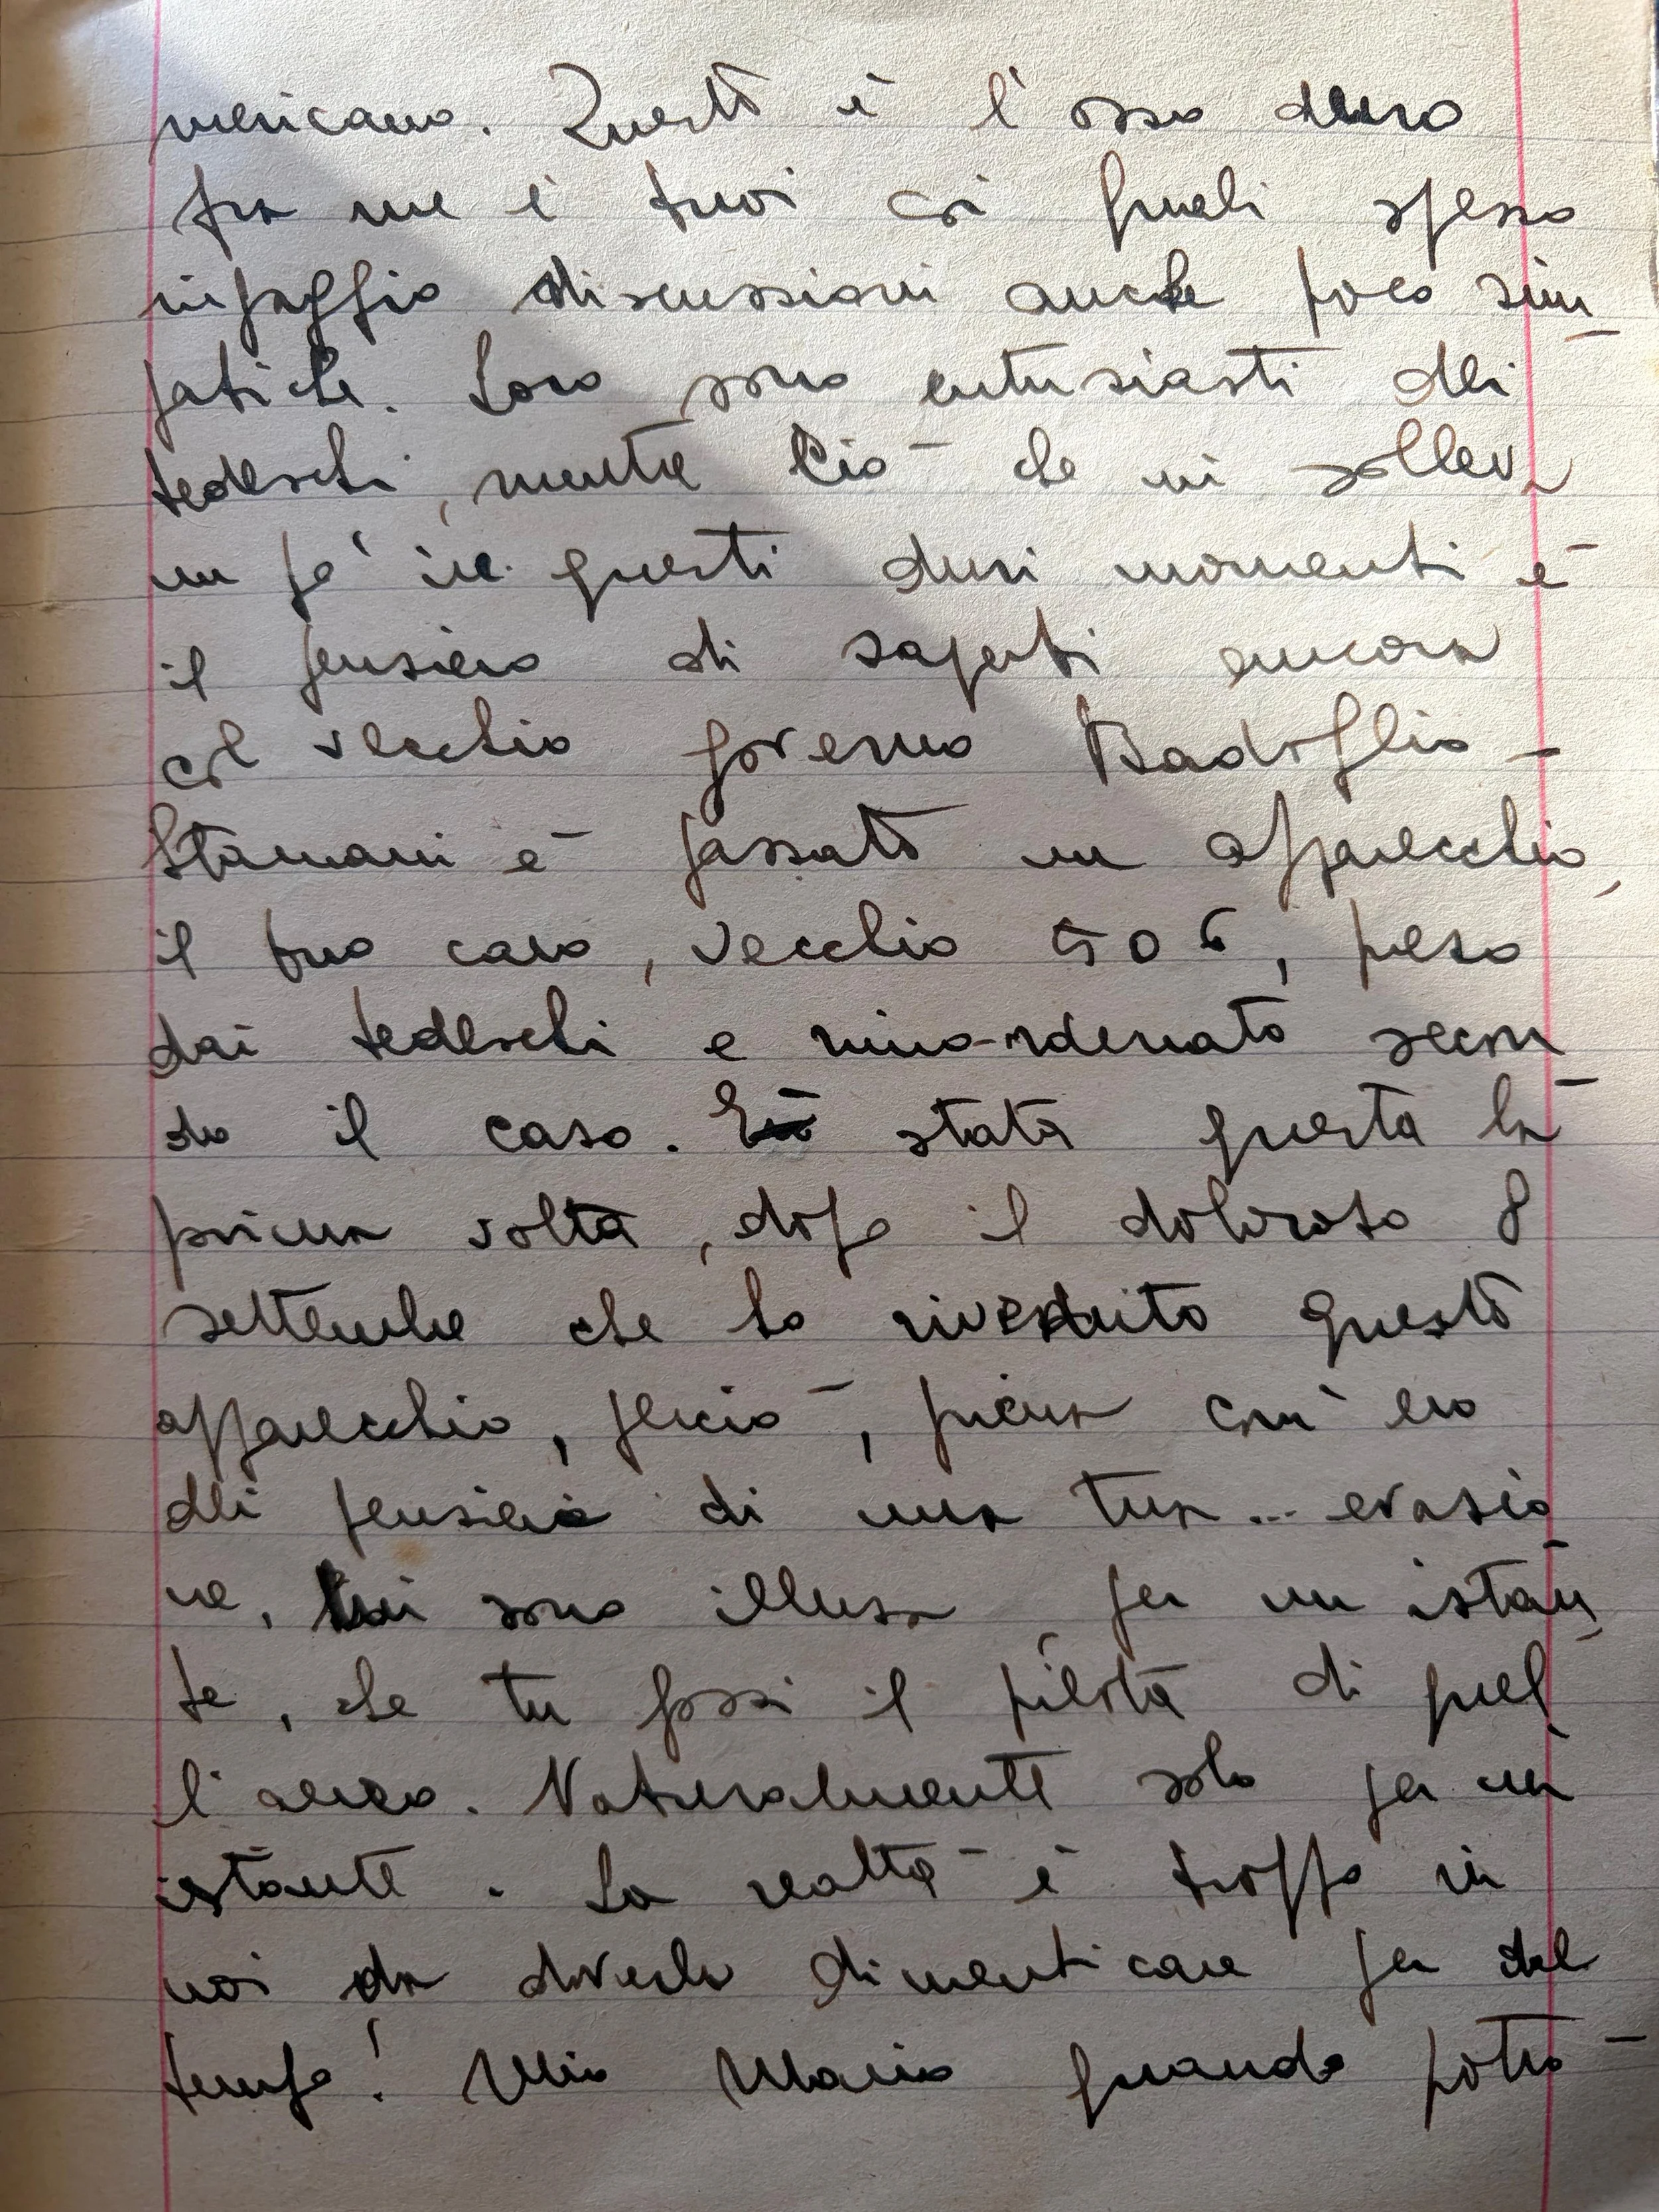 mericano. Questo è l'osso duro
fra me e i tuoi coi quali spesso
ingaggio discussioni anche poco sim
patiche. Loro sono entusiasti dei
tedeschi, mentre ciò che mi solleva
un po' in questi duri momenti è
il pensiero di saperti ancora
col vecchio governo Badoglio -
Stamani è passato un apparecchio,
il tuo caro, vecchio 506, preso
dai tedeschi e rimodernato secon
do il caso. È stata questa la
prima volta, dopo il doloroso 8
settembre che ho riveduto questo
apparecchio, perciò, piena com'ero
del pensiero di una tua... evasio
ne, mi sono illusa, per un istan
te, che tu fossi il pilota di quel
l'aereo. Naturalmente solo per un
istante. La realtà è troppo in
noi da doverla dimenticare per del
tempo! Mio Mario quando potrò